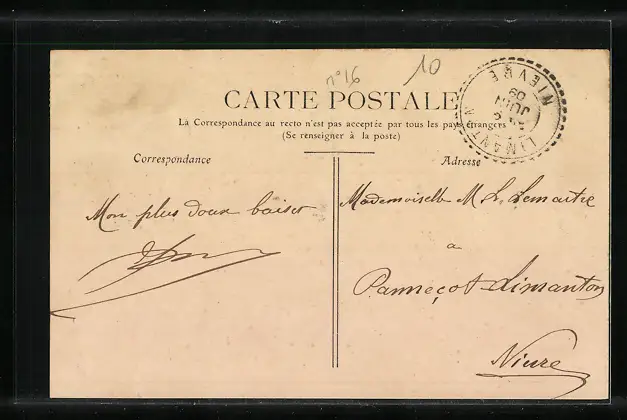 n°16
10
CARTE POSTALE
La Correspondance au recto n'est pas acceptée par tous les pays étrangers
(Se renseigner à la poste)
LIMANTON
JUIN
09
NIEVRE
Correspondance
Adresse
Mon plus doux baiser
Mademoiselle M L. Lemaitre
a
Panneçot Limanton
Nievre